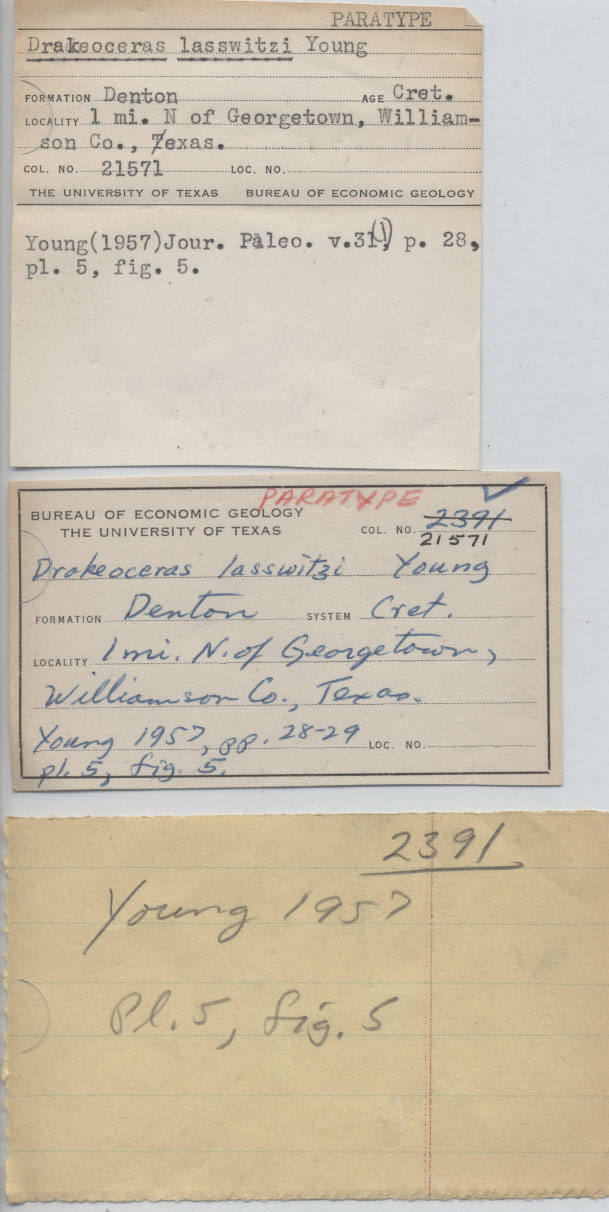 PARATYPE
Drakeoceras lasswitzi Young
FORMATION Denton AGE Cret.
LOCALITY 1 mi. N of Georgetown, William-
son Co., Texas.
COL. NO. 21571 LOC. NO.
THE UNIVERSITY OF TEXAS BUREAU OF ECONOMIC GEOLOGY
Young(1957)Jour. Paleo. v.31(1), p. 28,
pl. 5, fig. 5.
PARATYPE
BUREAU OF ECONOMIC GEOLOGY
THE UNIVERSITY OF TEXAS COL. NO. 2391
21571
Drakeoceras lasswitzi Young
FORMATION Denton SYSTEM Cret.
LOCALITY 1 mi. N. of Georgetown,
Williamson Co., Texas.
Young 1957, pp. 28-29 LOC. NO.
pl. 5, fig. 5.
2391
Young 1957
Pl. 5, fig. 5